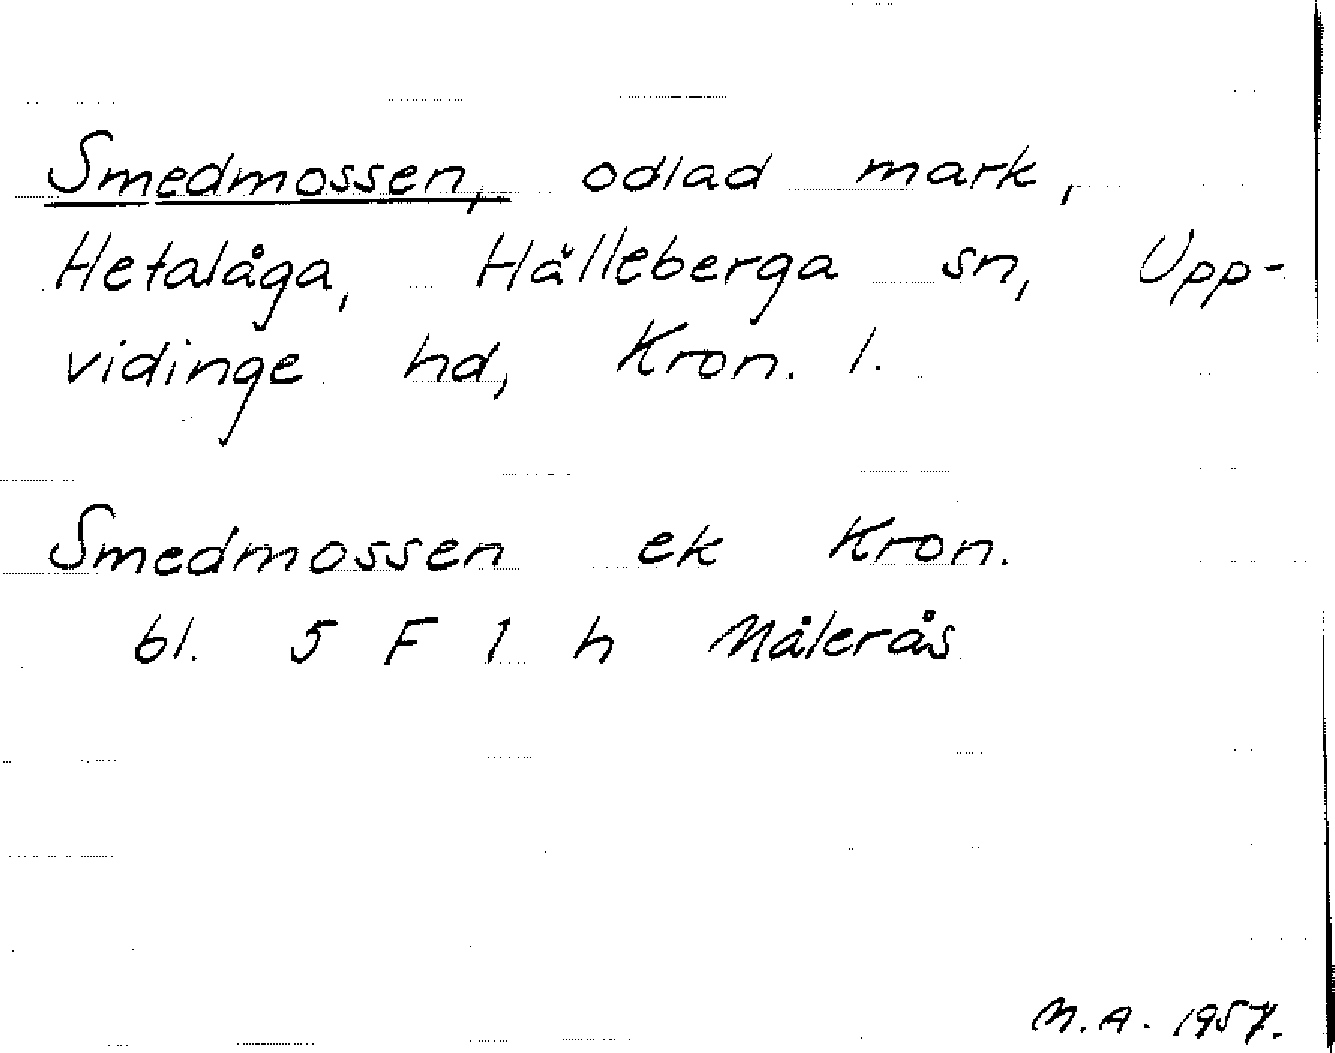 Smedmossen, odlad mark,
Hetalåga, Hälleberga sn, Upp-
vidinge hd, Kron. l.
Smedmossen ek Kron.
bl. 5 F 1 h Målerås
M.A. 1957.